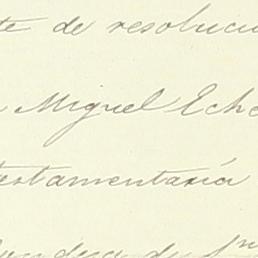 te de resoluci
Miguel Eche
testamentaria